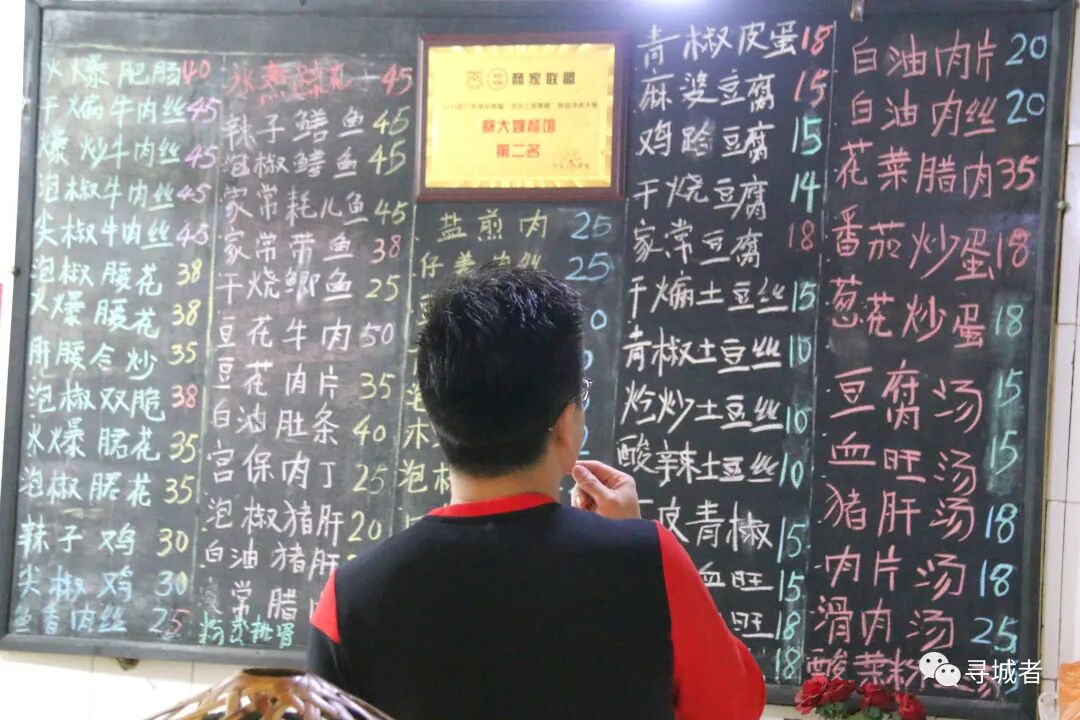 火爆肥肠40
干煸牛肉丝45
爆炒牛肉丝45
泡椒牛肉丝45
尖椒牛肉丝45
泡椒腰花38
火爆腰花38
肝腰合炒35
泡椒双脆38
火爆郡花35
泡椒郡花35
辣子鸡30
尖椒鸡30
鱼香肉丝25
45
辣子鳝鱼45
泡椒鳝鱼45
家常耗儿鱼45
家常带鱼38
干烧鲫鱼25
豆花牛肉50
豆花肉片35
白油肚条40
宫保肉丁25
泡椒猪肝20
白油猪肝
家常腊
粉蒸排骨
商家联盟
第二名
盐煎肉25
仔姜肉丝25
泡
木
泡椒
青椒皮蛋18
麻婆豆腐15
鸡跄豆腐15
干烧豆腐14
家常豆腐18
干煸土豆丝15
青椒土豆丝10
炝炒土豆丝10
酸辣土豆丝10
皮青椒15
血旺15
旺18
18
白油肉片20
白油肉丝20
花菜腊肉35
番茄炒蛋18
葱花炒蛋18
豆腐汤15
血旺汤15
猪肝汤18
肉片汤18
滑肉汤25
酸菜粉
寻城者